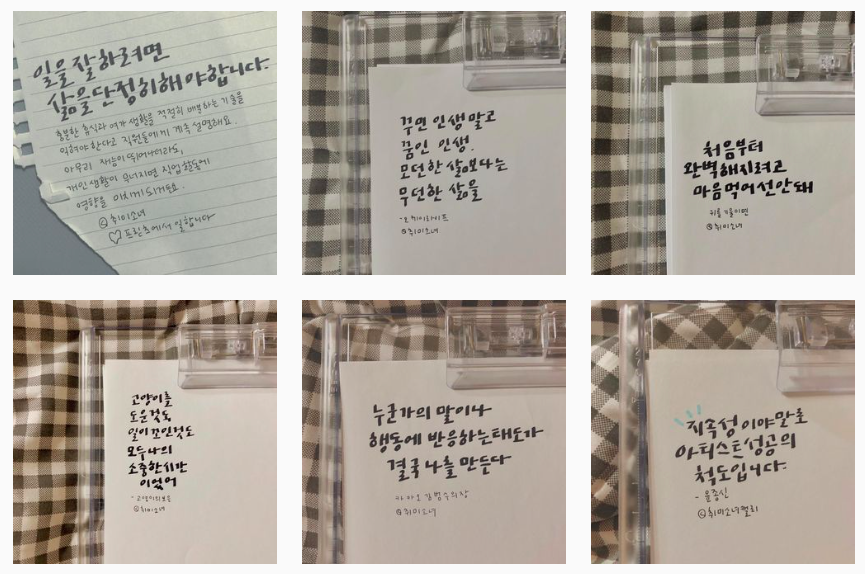 일을 잘하려면
삶을 단정히 해야 합니다.
충분한 휴식과 여가 생활을 적절히 배분하는 기술을
익혀야 한다고 직원들에게 계속 설명해요.
아무리 재능이 뛰어나더라도,
개인 생활이 무너지면 직업 활동에
영향을 미치게 되거든요.
ⓒ취미소녀
♡프릳츠에서 일합니다
꾸민 인생 말고
꿈인 인생.
모던한 삶보다는
무던한 삶을
@취미소녀
처음부터
완벽해지려고
마음먹어선안돼
귀를 기울이면
@취미소녀
고양이를
도운것도
일이 꼬인것도
모두 나의
소중한 시간
이었어
-고양이의보은
@취미소녀
누군가의 말이나
행동에 반응하는 태도가
결국 나를 만든다
카카오 김범수의장
@취미소녀
지속성이야말로
아티스트 성공의
척도입니다.
-윤종신
ⓒ취미소녀캘리